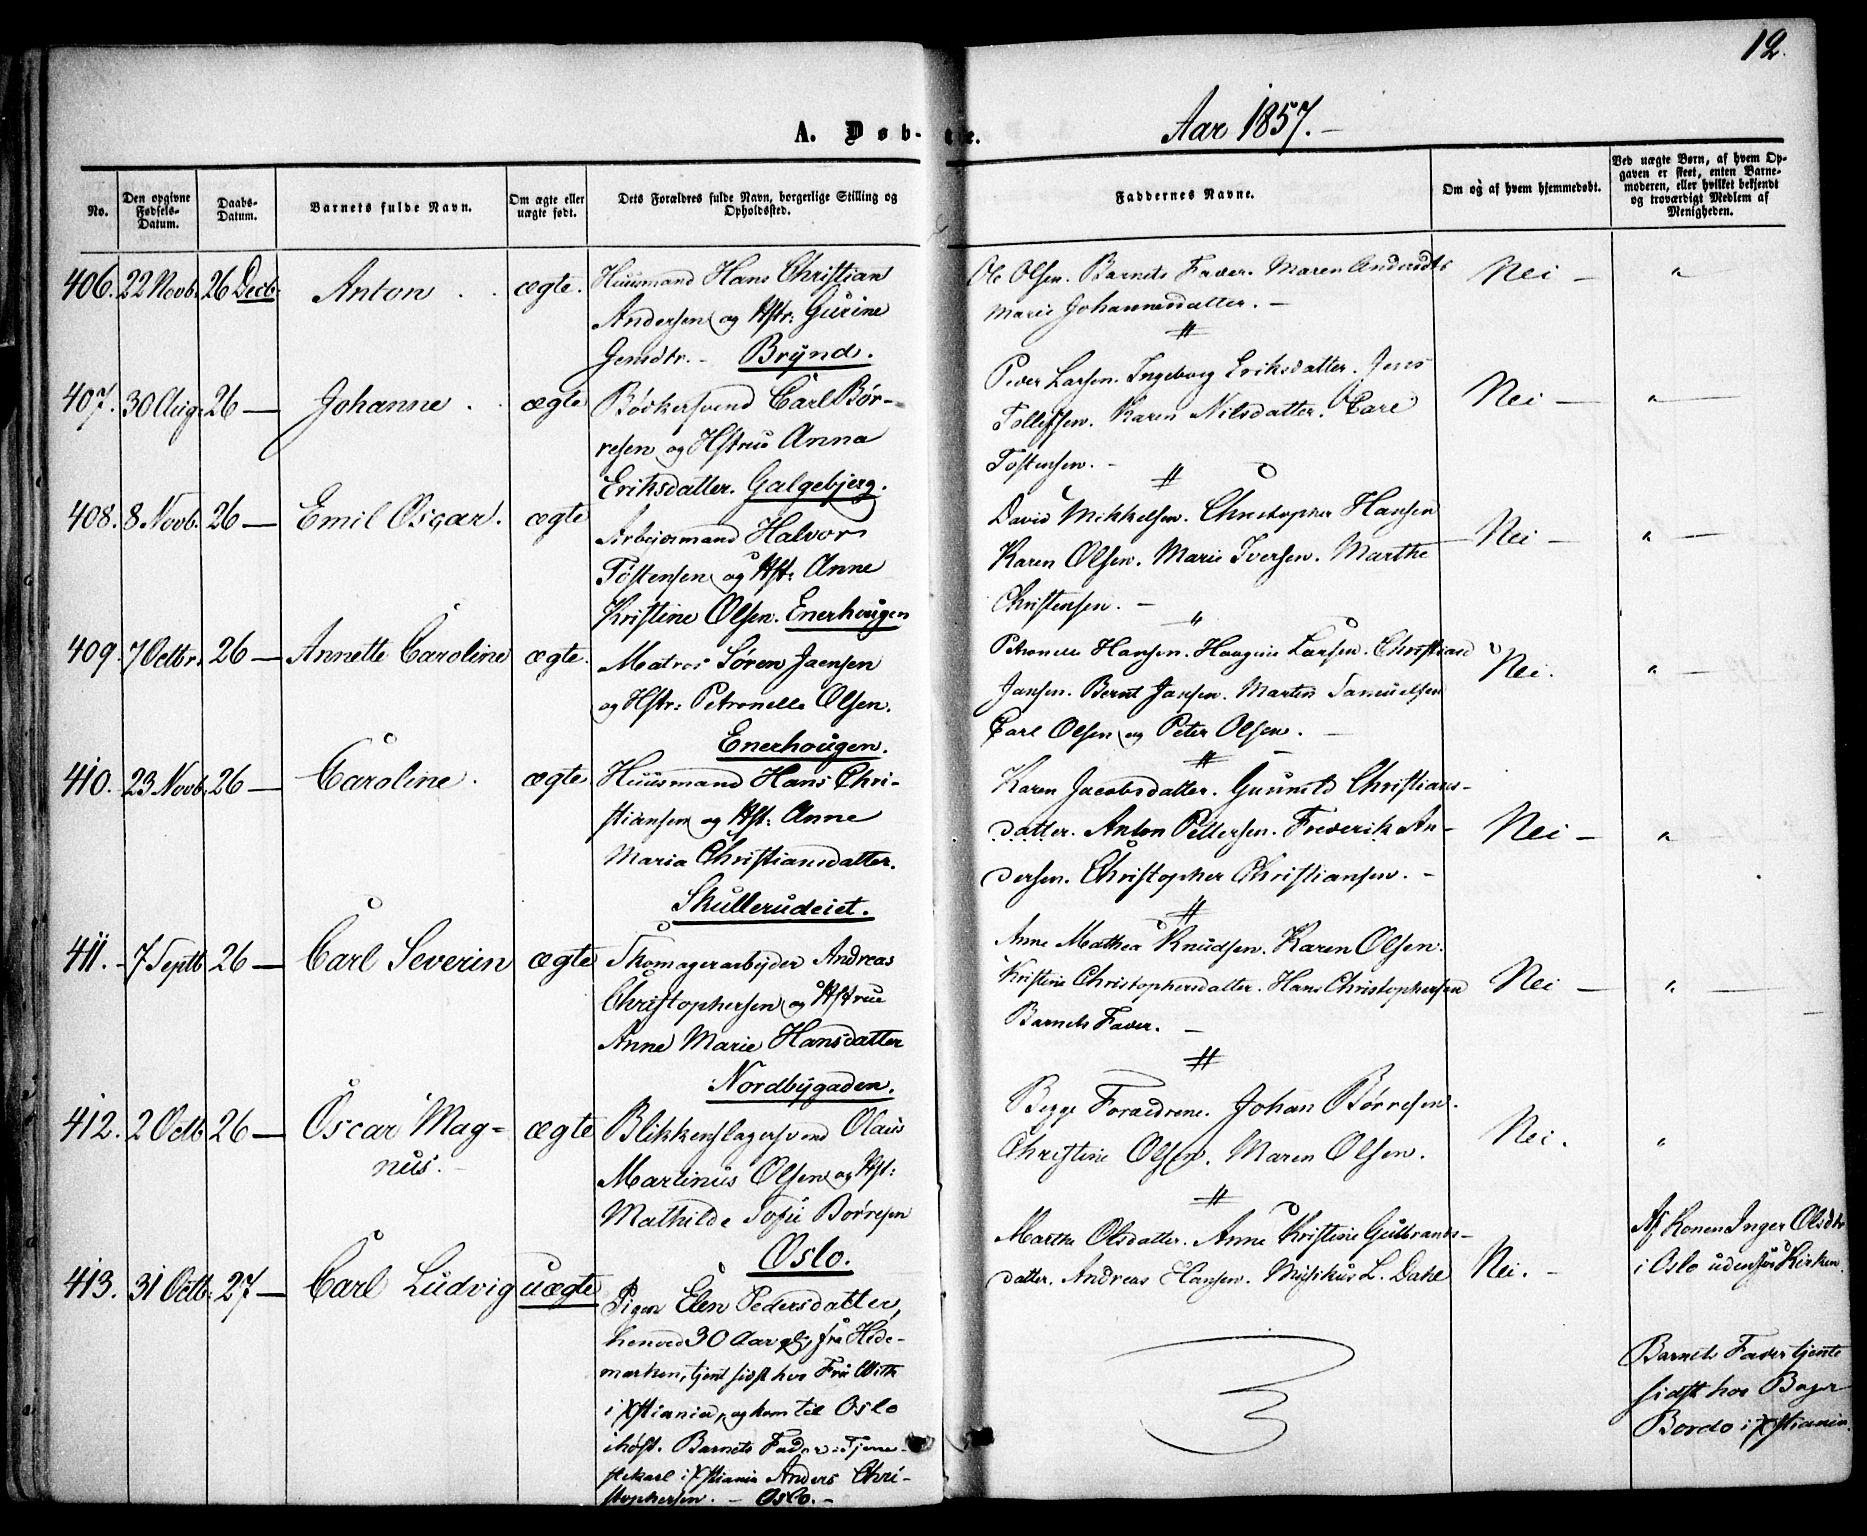 12.
A. Døb- te.
Aar 1857. -
No.
Den opgivne Fødsels-Datum.
Daabs-Datum.
Barnets fulde Navn.
Om ægte eller uægte født.
Dets Forældres fulde Navn, borgerlige Stilling og Opholdssted.
Faddernes Navne.
Om og af hvem hjemmedøbt.
Ved uægte Børn, af hvem Opgaven er skeet, enten Barnemoderen, eller hvilket bekjendt og troværdigt Medlem af Menigheden.
406. 22 Novb. 26 Decb. Anton. ægte.
Huusmand Hans Christian
Andersen og Hstr: Gurine
Jensdtr. - Brynd.
Ole Olsen. Barnets Fader. Maren
Marie Johannesdatter. -
Nei - "
407. 30 Aug. 26 — Johanne. ægte
Bødkersvend Carl Bør-
resen og Hstrue Anna
Eriksdatter. Galgebjerg.
Peder Larsen. Ingeborg Eriksdatter. Jens
Tollefsen. Karen Nilsdatter. Carl
Tostensen. -
Nei - "
408. 8 Novb. 26 — Emil Oscar. ægte
Arbejdsmand Halvor
Tostensen og Hst: Anne
Kristine Olsen. Enerhougen
David Mikkelsen. Christopher Hansen
Karen Olsen. Marie Iversen. Marthe
Christensen. -
Nei - "
409. 7 Octbr. 26 — Annette Caroline ægte.
Matros Søren Jaensen
og Hstr: Petronelle Olsen.
Enerhougen.
Petronelle Hansen. Haagine Larsen. Christian
Jansen. Bernt Jansen. Martin Samuelsen
Carl Olsen og Peter Olsen. -
Nei. "
410. 23 Novb. 26 — Caroline. ægte
Huusmand Hans Chri-
stiansen og Hst: Anne
Maria Christiansdatter.
Skullerudeiet.
Karen Jacobsdatter. Gunnild Christians-
datter. Anton Pettersen. Frederik An-
dersen. Christopher Christiansen. -
Nei - "
411. - 7 Septb 26 — Carl Severin ægte
Skomagerarbejder Andreas
Christophersen og Hstrue
Anne Marie Hansdatter
Nordbygaden.
Anne Mathea Knudsen. Karen Olsen.
Kristine Christophersdatter. Hans Christophersen
Barnets Fader. -
Nei - "
412. 2 Octb 26 — Oscar Mag-
nus. - ægte
Blikkenslagersvend Olaus
Martinus Olsen og Hst:
Mathilde Sofie Børresen
Oslo.
Begge Forældrene. Johan Børresen.
Christine Olsen. Maren Olsen.
Nei. "
413. 31 Octb. 27 — Carl Ludvig uægte
Pigen Elen Pedersdatter,
henved 30 Aar gl, fra Hede-
marken, tjent sidst hos Fru With
i Xstiania, og kom til Oslo
ihøst. Barnets Fader: Tjene-
stekarl i Xstiania Anders Chri-
stophersen. - Oslo. -
Marthe Olsdatter. Anne Kristine Gulbrands-
datter. Andreas Hansen. Musikus L. Dahl
Nei. -
Af Konen Inger Olsdtr
i Oslo udenfor Kirken.
Barnets Fader tjente
sidst hos Bager
Bordo i Xstiania.